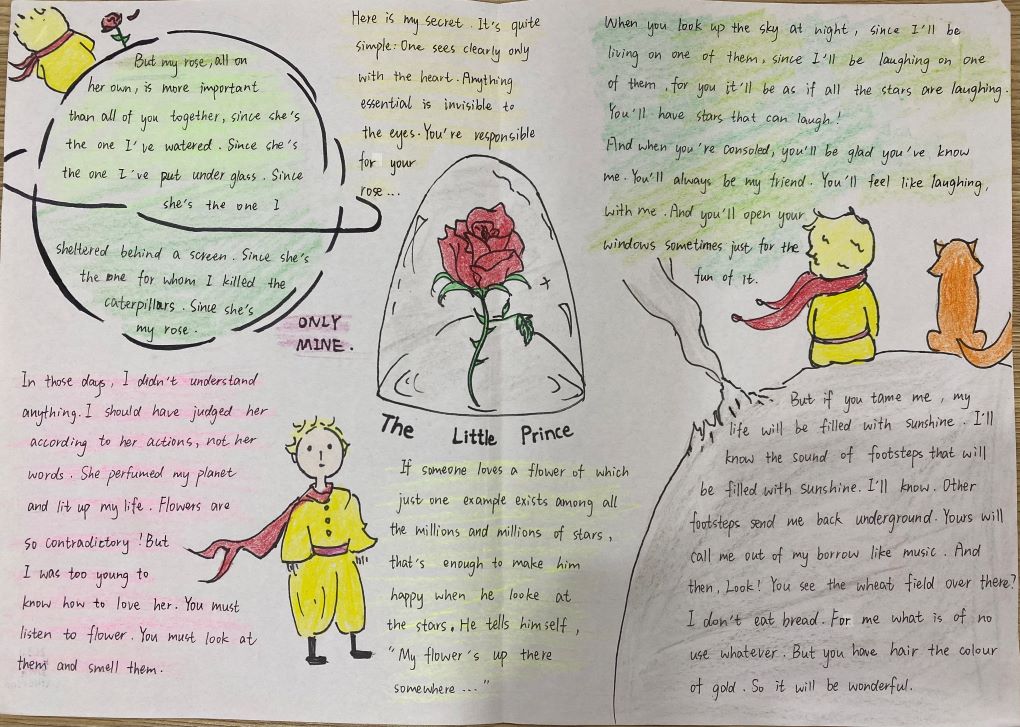 But my rose, all on
her own, is more important
than all of you together, since she's
the one I've watered. Since she's
the one I've put under glass. Since
she's the one I
sheltered behind a screen. Since she's
the one for whom I killed the
caterpillars. Since she's
my rose.
ONLY
MINE.
In those days, I didn't understand
anything. I should have judged her
according to her actions, not her
words. She perfumed my planet
and lit up my life. Flowers are
so contradictory! But
I was too young to
know how to love her. You must
listen to flower. You must look at
them and smell them.
Here is my secret. It's quite
simple: One sees clearly only
with the heart. Anything
essential is invisible to
the eyes. You're responsible
for your
rose...
The Little Prince
If someone loves a flower of which
just one example exists among all
the millions and millions of stars,
that's enough to make him
happy when he looke at
the stars. He tells himself,
"My flower's up there
somewhere..."
When you look up the sky at night, since I'll be
living on one of them, since I'll be laughing on one
of them, for you it'll be as if all the stars are laughing.
You'll have stars that can laugh!
And when you're consoled, you'll be glad you've know
me. You'll always be my friend. You'll feel like laughing,
with me. And you'll open your
windows sometimes just for the
fun of it.
But if you tame me, my
life will be filled with sunshine. I'll
know the sound of footsteps that will
be filled with sunshine. I'll know. Other
footsteps send me back underground. Yours will
call me out of my borrow like music. And
then, Look! You see the wheat field over there?
I don't eat bread. For me what is of no
use whatever. But you have hair the colour
of gold. So it will be wonderful.